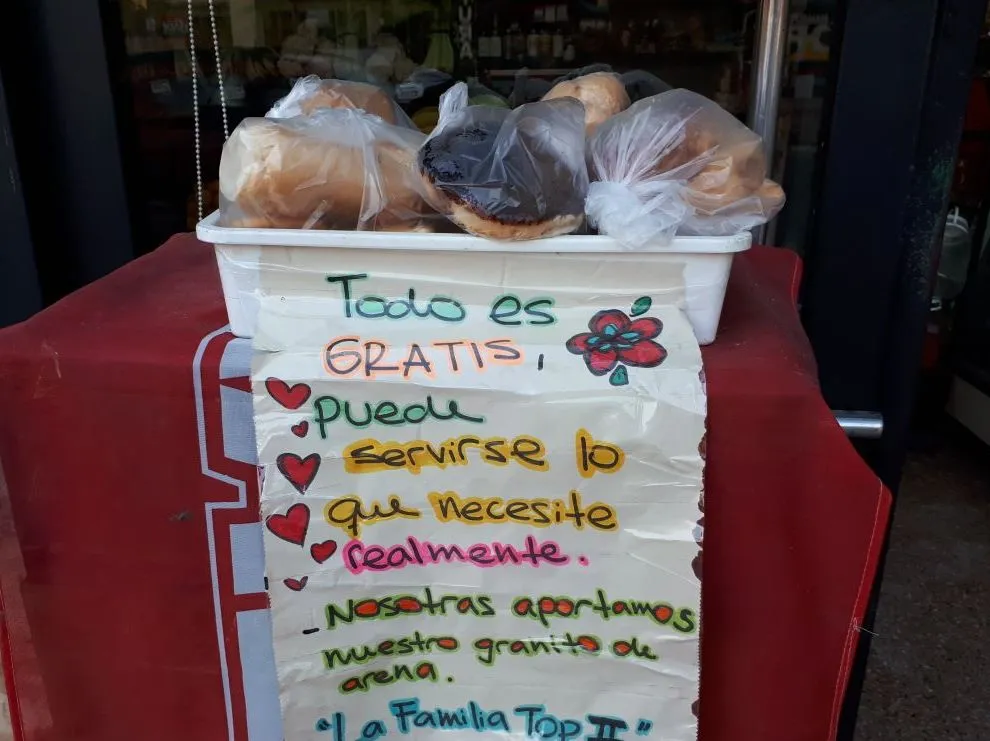 Todo es
GRATIS,
puede
servirse lo
que necesite
realmente.
- Nosotras aportamos
nuestro granito de
arena.
"La Familia Top II"